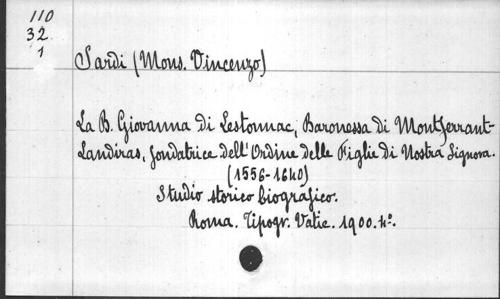 110
32
1
Sardi (Mons. Vincenzo)
La B. Giovanna di Lestonnac, Baronessa di Montferrant-
Landiras, fondatrice dell'Ordine delle Figlie di Nostra Signora.
(1556-1640)
Studio storico biografico.
Roma. Tipogr. Vatic. 1900. 4º.